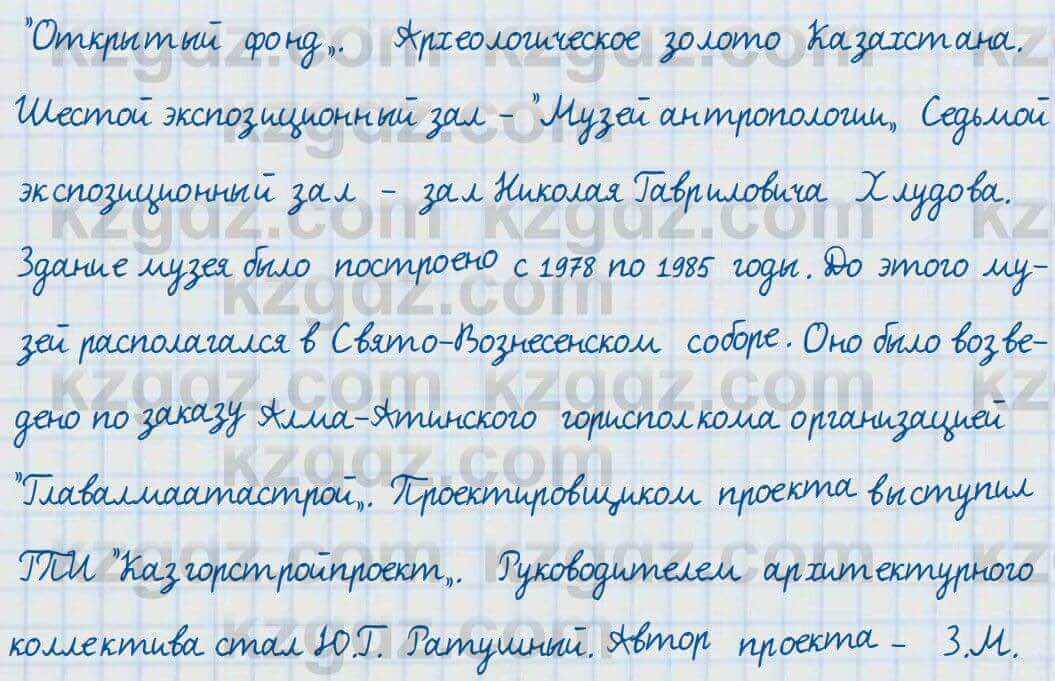 "Открытый фонд„. Археологическое золото Казахстана.
Шестой экспозиционный зал - "Музей антропологии„ Седьмой
экспозиционный зал - зал Николая Гавриловича Хлудова.
Здание музея было построено с 1978 по 1985 годы. До этого му-
зей располагался в Свято-Вознесенском соборе. Оно было возве-
дено по заказу Алма-Атинского горисполкома организацией
"Главалмаатастрой„. Проектировщиком проекта выступил
ГПИ "Казгорстройпроект„. Руководителем архитектурного
коллектива стал Ю.Г. Ратушный. Автор проекта - З.М.
kzgdz.com